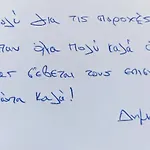 πολύ για τις παροχές
ταν όλα πολύ καλά
σέβεται τους επισ
πάντα καλά!
Δημ